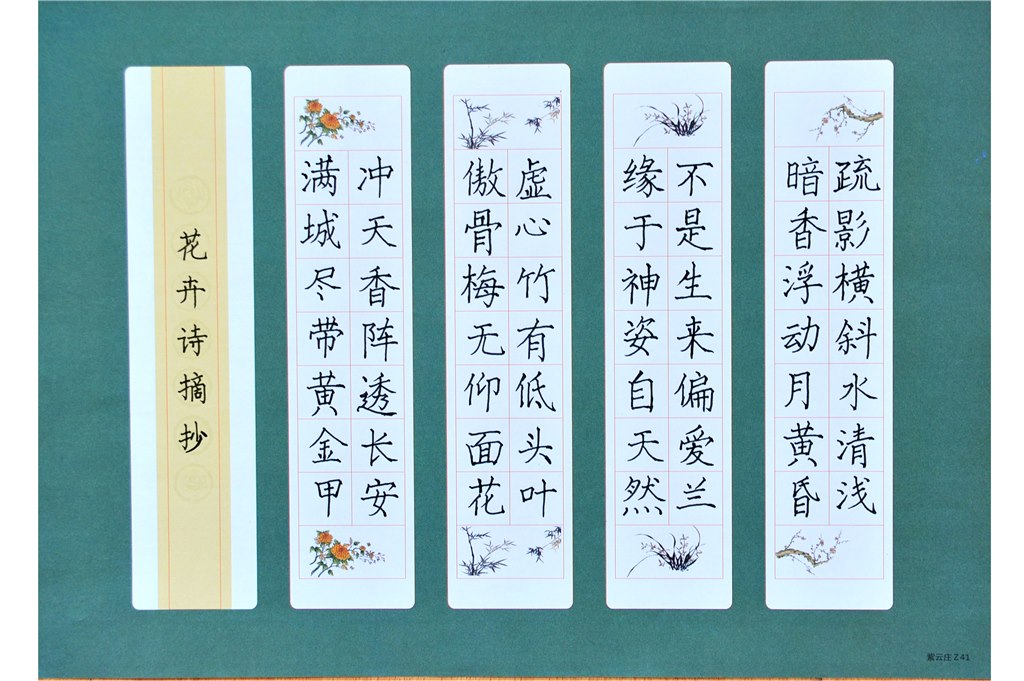 疏影横斜水清浅
暗香浮动月黄昏
不是生来偏爱兰
缘于神姿自天然
虚心竹有低头叶
傲骨梅无仰面花
冲天香阵透长安
满城尽带黄金甲
花卉诗摘抄
紫云庄Z41